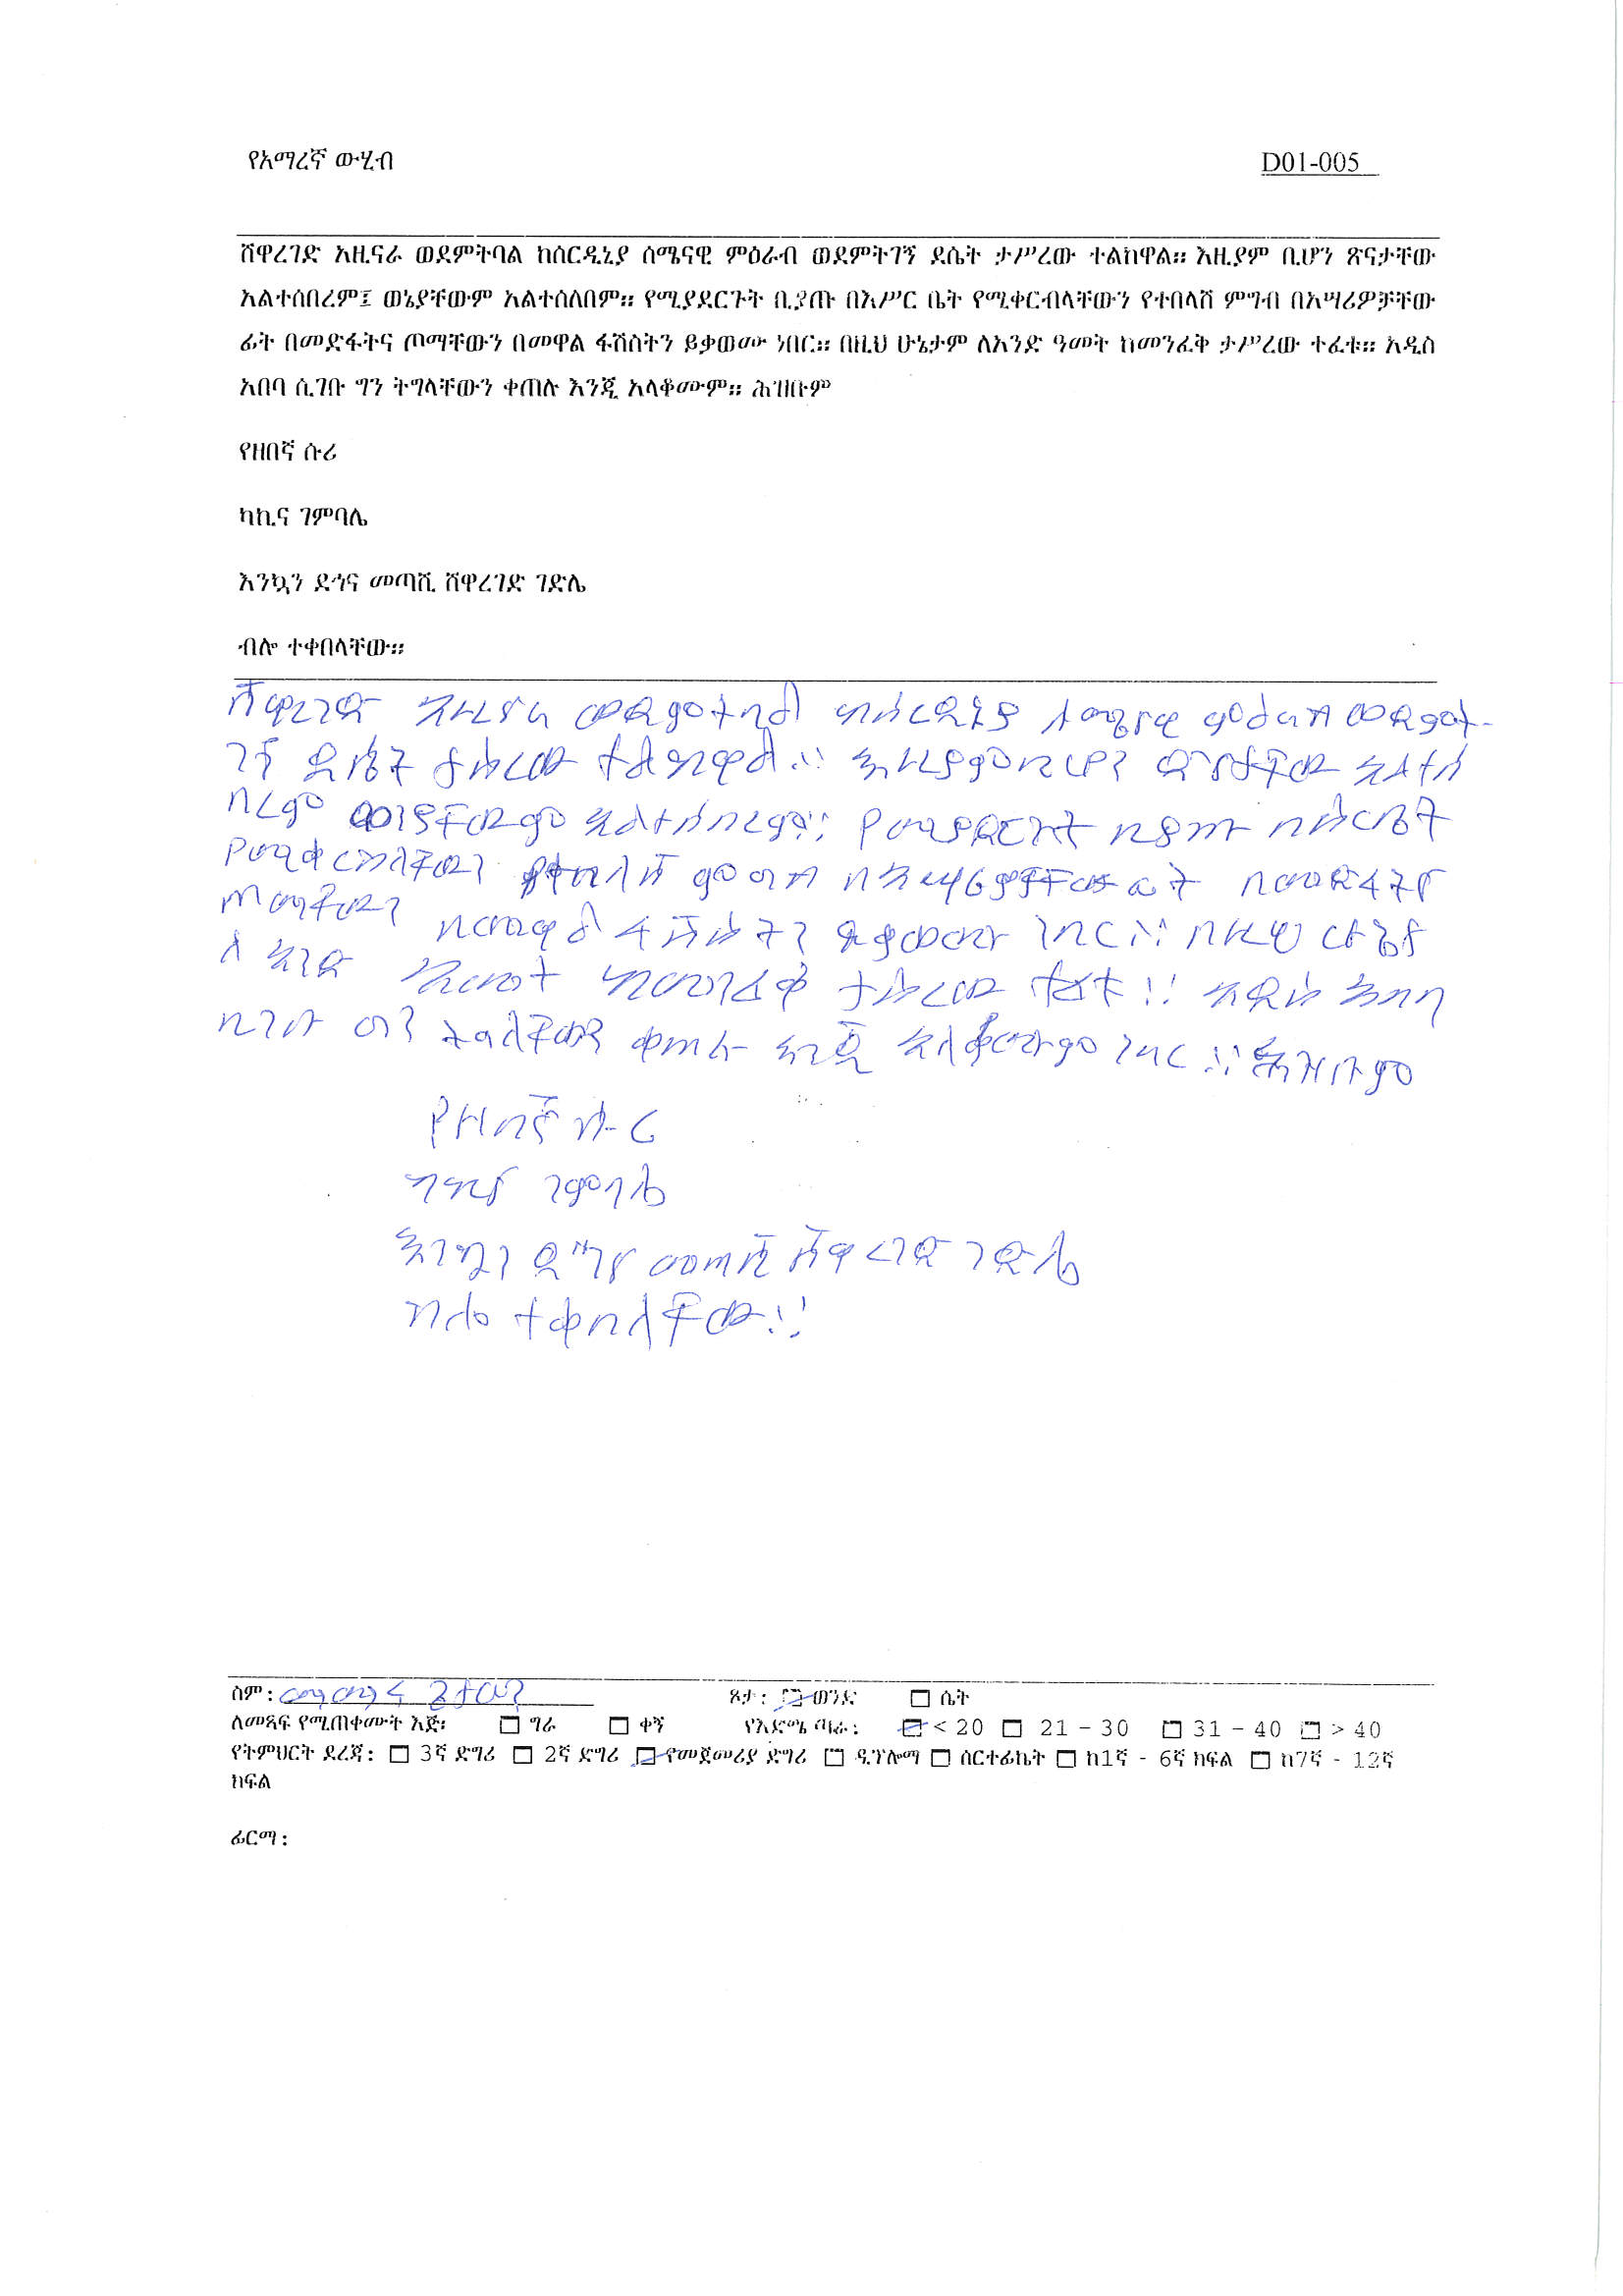 የአማረኛ ውሂብ D01-005
ሸዋረገድ አዚናራ ወደምትባል ከሰርዲኒያ ሰሜናዊ ምዕራብ ወደምትገኝ ደሴት ታሥረው ተልከዋል። እዚያም ቢሆን ጽናታቸው
አልተሰበረም፤ ወኔያቸውም አልተሰለበም። የሚያደርጉት ቢያጡ በእሥር ቤት የሚቀርብላቸውን የተበላሸ ምግብ በአሣሪዎቻቸው
ፊት በመድፋትና ጦማቸውን በመዋል ፋሽስትን ይቃወሙ ነበር። በዚህ ሁኔታም ለአንድ ዓመት ከመንፈቅ ታሥረው ተፈቱ። አዲስ
አበባ ሲገቡ ግን ትግላቸውን ቀጠሉ እንጂ አላቆሙም። ሕዝቡም
የዘበኛ ሱሪ
ካኪና ገምባሌ
እንኳን ደኅና መጣሺ ሸዋረገድ ገድሌ
ብሎ ተቀበላቸው።
ሸዋረገድ አዚናራ ወደምትባል ከሰርዲኒያ ሰሜናዊ ምዕራብ ወደምት
ገኝ ደሴት ታሥረው ተልከዋል። እዚያም ቢሆን ጽናታቸው አልተሰ
በረም ወኔያቸውም አልተሰበረም። የሚያደርጉት ቢያጡ በእሥርቤት
የሚቀርብላቸውን የተበላሸ ምግብ በአሣሪዎቻቸው ፊት በመድፋትና
ጦማቸውን በመዋል ፋሽስትን ይቃወሙ ነበር። በዚህ ሁኔታ
ለአንድ ዓመት ከመንፈቅ ታሥረው ተፈቱ። አዲስ አበባ
ቢገቡ ግን ትግላቸውን ቀጠሉ እንጂ አላቆሙም ነበር። ሕዝቡም
የዘበኛ ሱሪ
ካኪና ገምባሌ
እንኳን ደኅና መጣሺ ሸዋረገድ ገድሌ
ብሎ ተቀበላቸው።
ስም: ጌታመን
ጾታ: ወንድ ሴት
ለመጻፍ የሚጠቀሙት እጅ: ግራ ቀኝ የእድሜ ባራ: < 20 21 – 30 31 – 40 > 40
የትምህርት ደረጃ: 3ኛ ድግሪ 2ኛ ድግሪ የመጀመሪያ ድግሪ ዲፕሎማ ሰርተፊኬት ከ1ኛ - 6ኛ ክፍል ከ7ኛ - 12ኛ
ክፍል
ፊርማ: